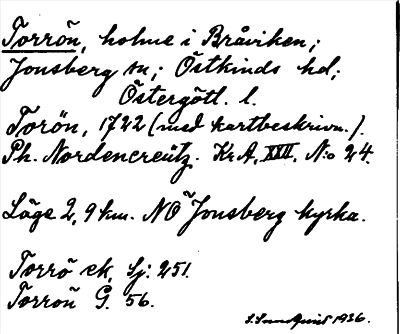 Torrön, holme i Bråviken;
Jonsberg sn; Östkinds hd;
Östergötl. l.
Torön, 1722 (med kartbeskrivn.).
Ph. Nordencreütz. Kr.A, XXII. N:o 24.
Läge 2,9 km. NO Jonsberg kyrka.
Torrö ek. Sj: 251.
Torrön G. 56.
S. Sundquist 1936.